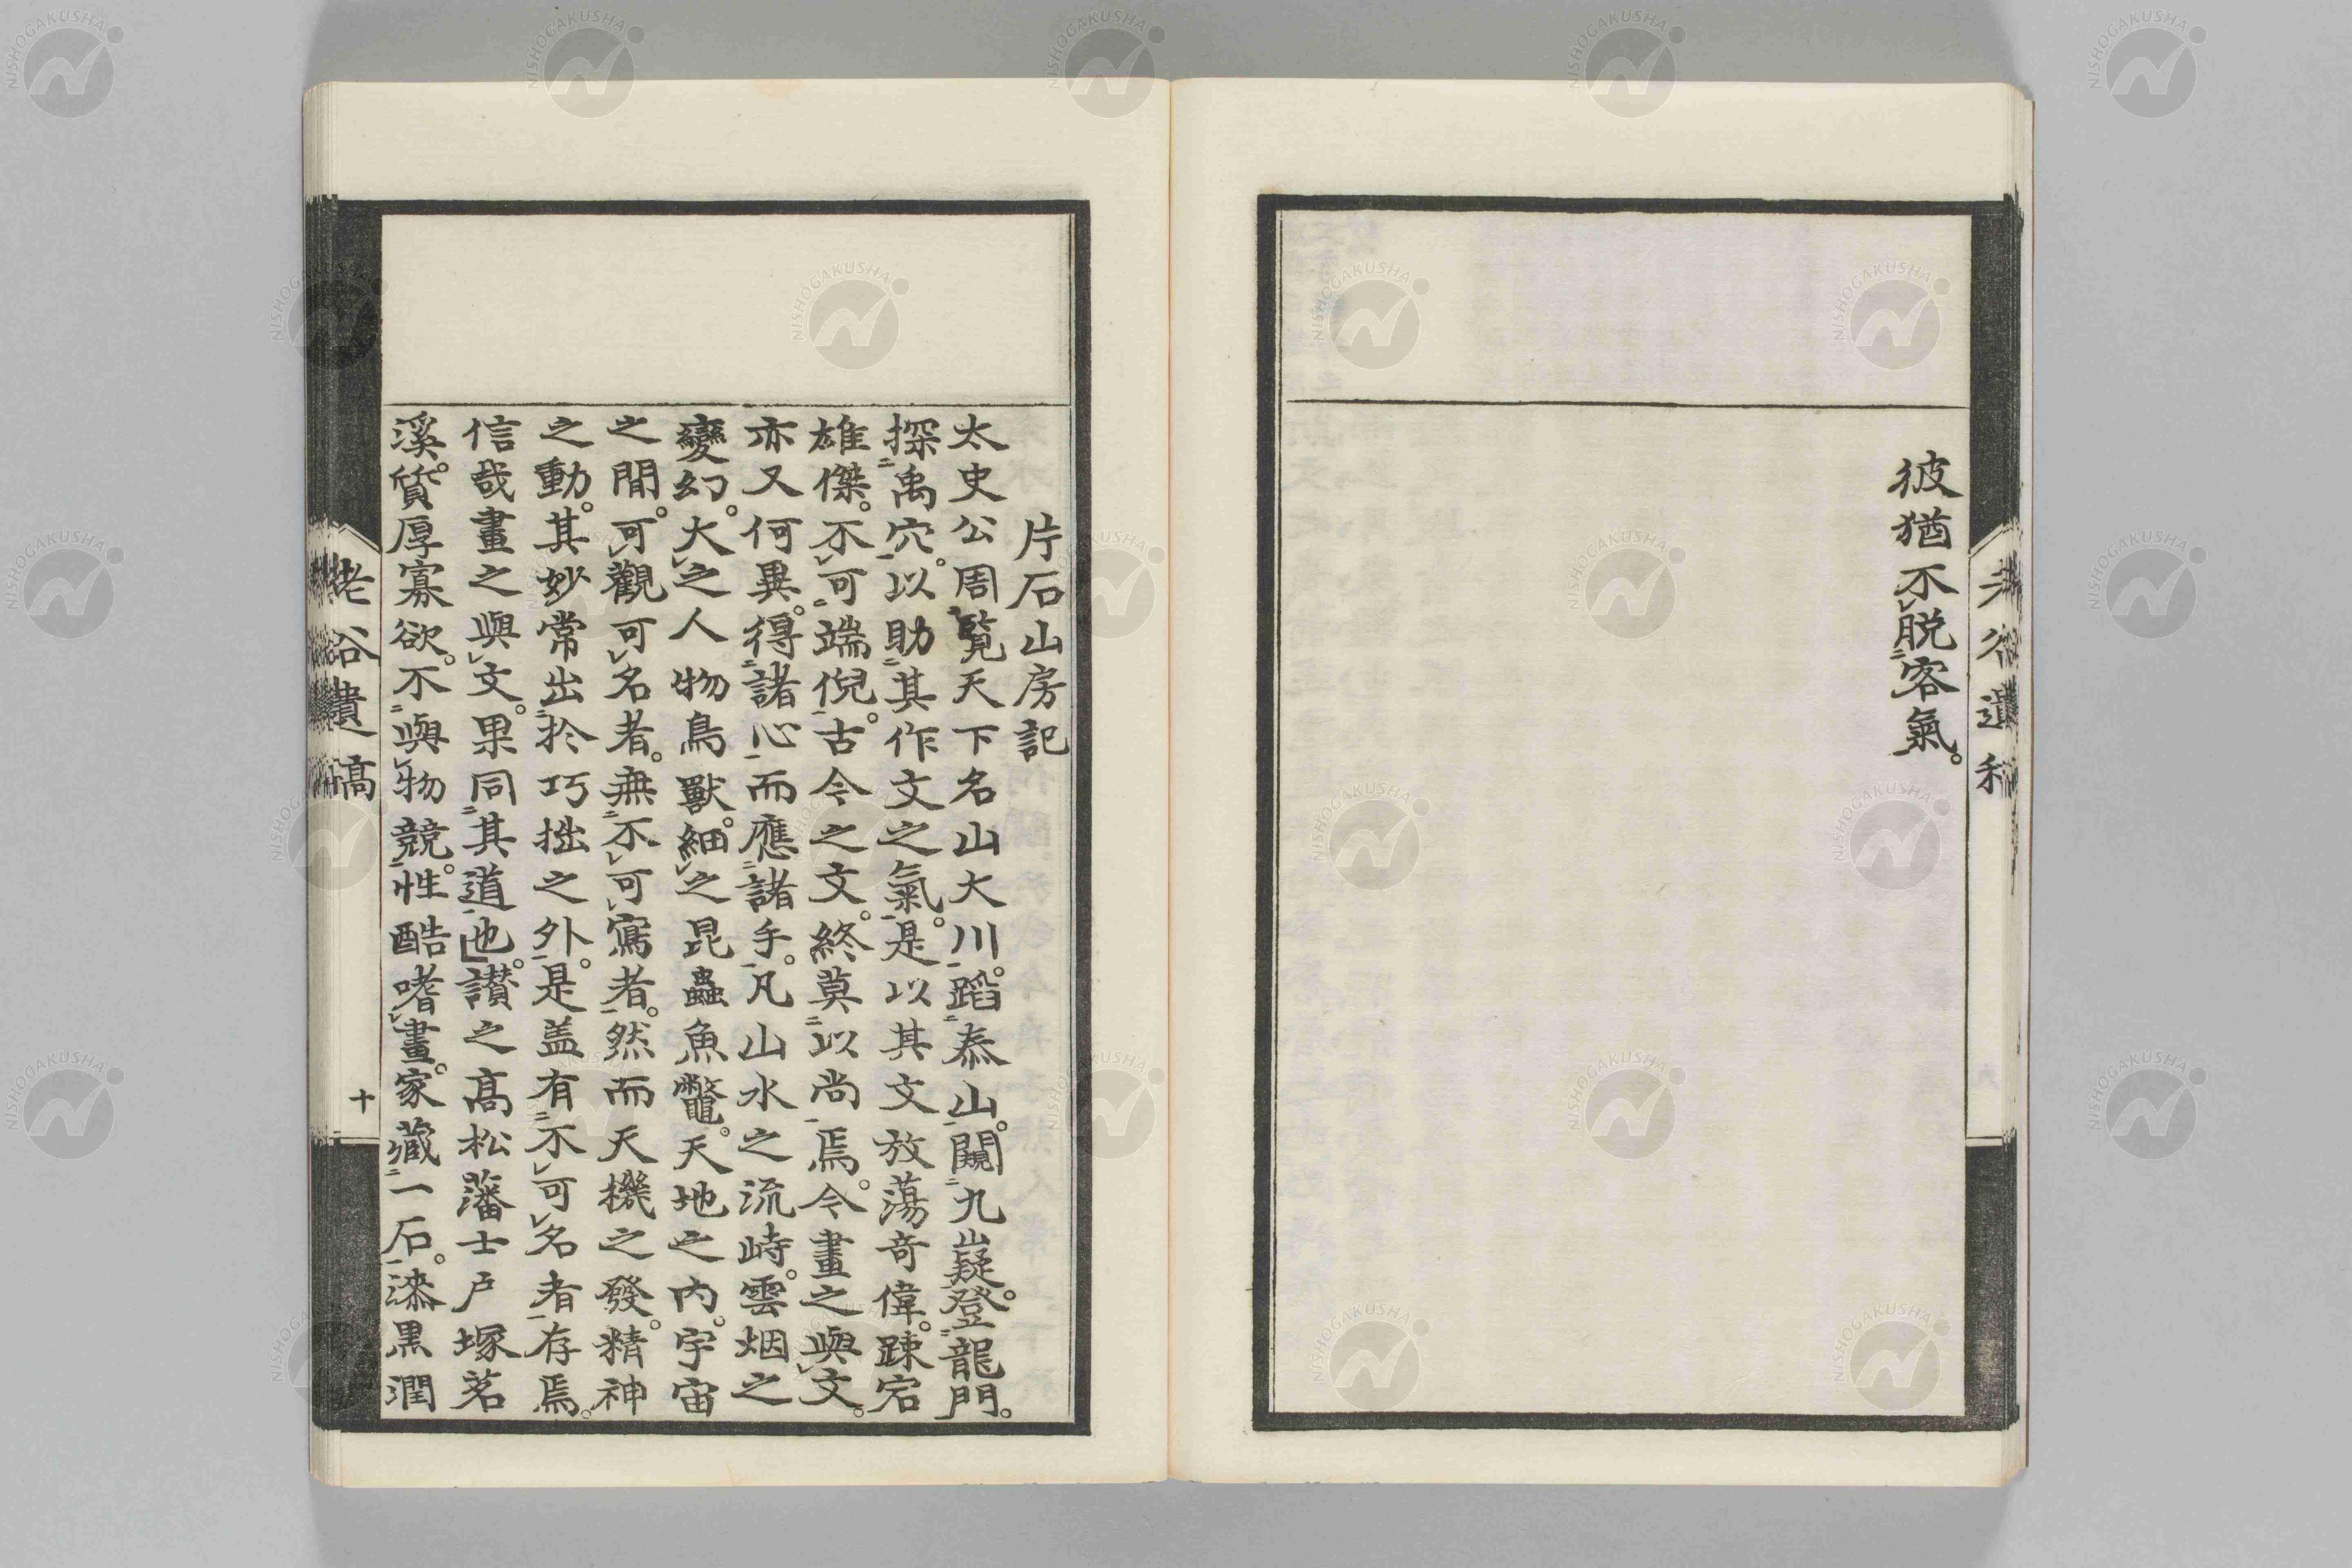 彼猶不脱客氣。
片石山房記
太史公周覧天下名山大川。蹈泰山。闚九嶷。登龍門。
探禹穴。以助其作文之氣。是以其文放蕩奇偉。踈宕
雄傑。不可端倪。古今之文。終莫以尚焉。今畫之與文。
亦又何異。得諸心而應諸手。凡山水之流峙。雲烟之
變幻。大之人物鳥獸。細之昆蟲魚鼈。天地之内。宇宙
之間。可觀可名者。無不可寫者。然而天機之發。精神
之動。其妙常出於巧拙之外。是盖有不可名者存焉。
信哉畫之與文。果同其道也。讃之髙松藩士戸塚茗
溪。質厚寡欲。不與物競。性酷嗜畫。家藏一石。漆黒潤
老谷遺稿
十
NISHOGAKUSHA